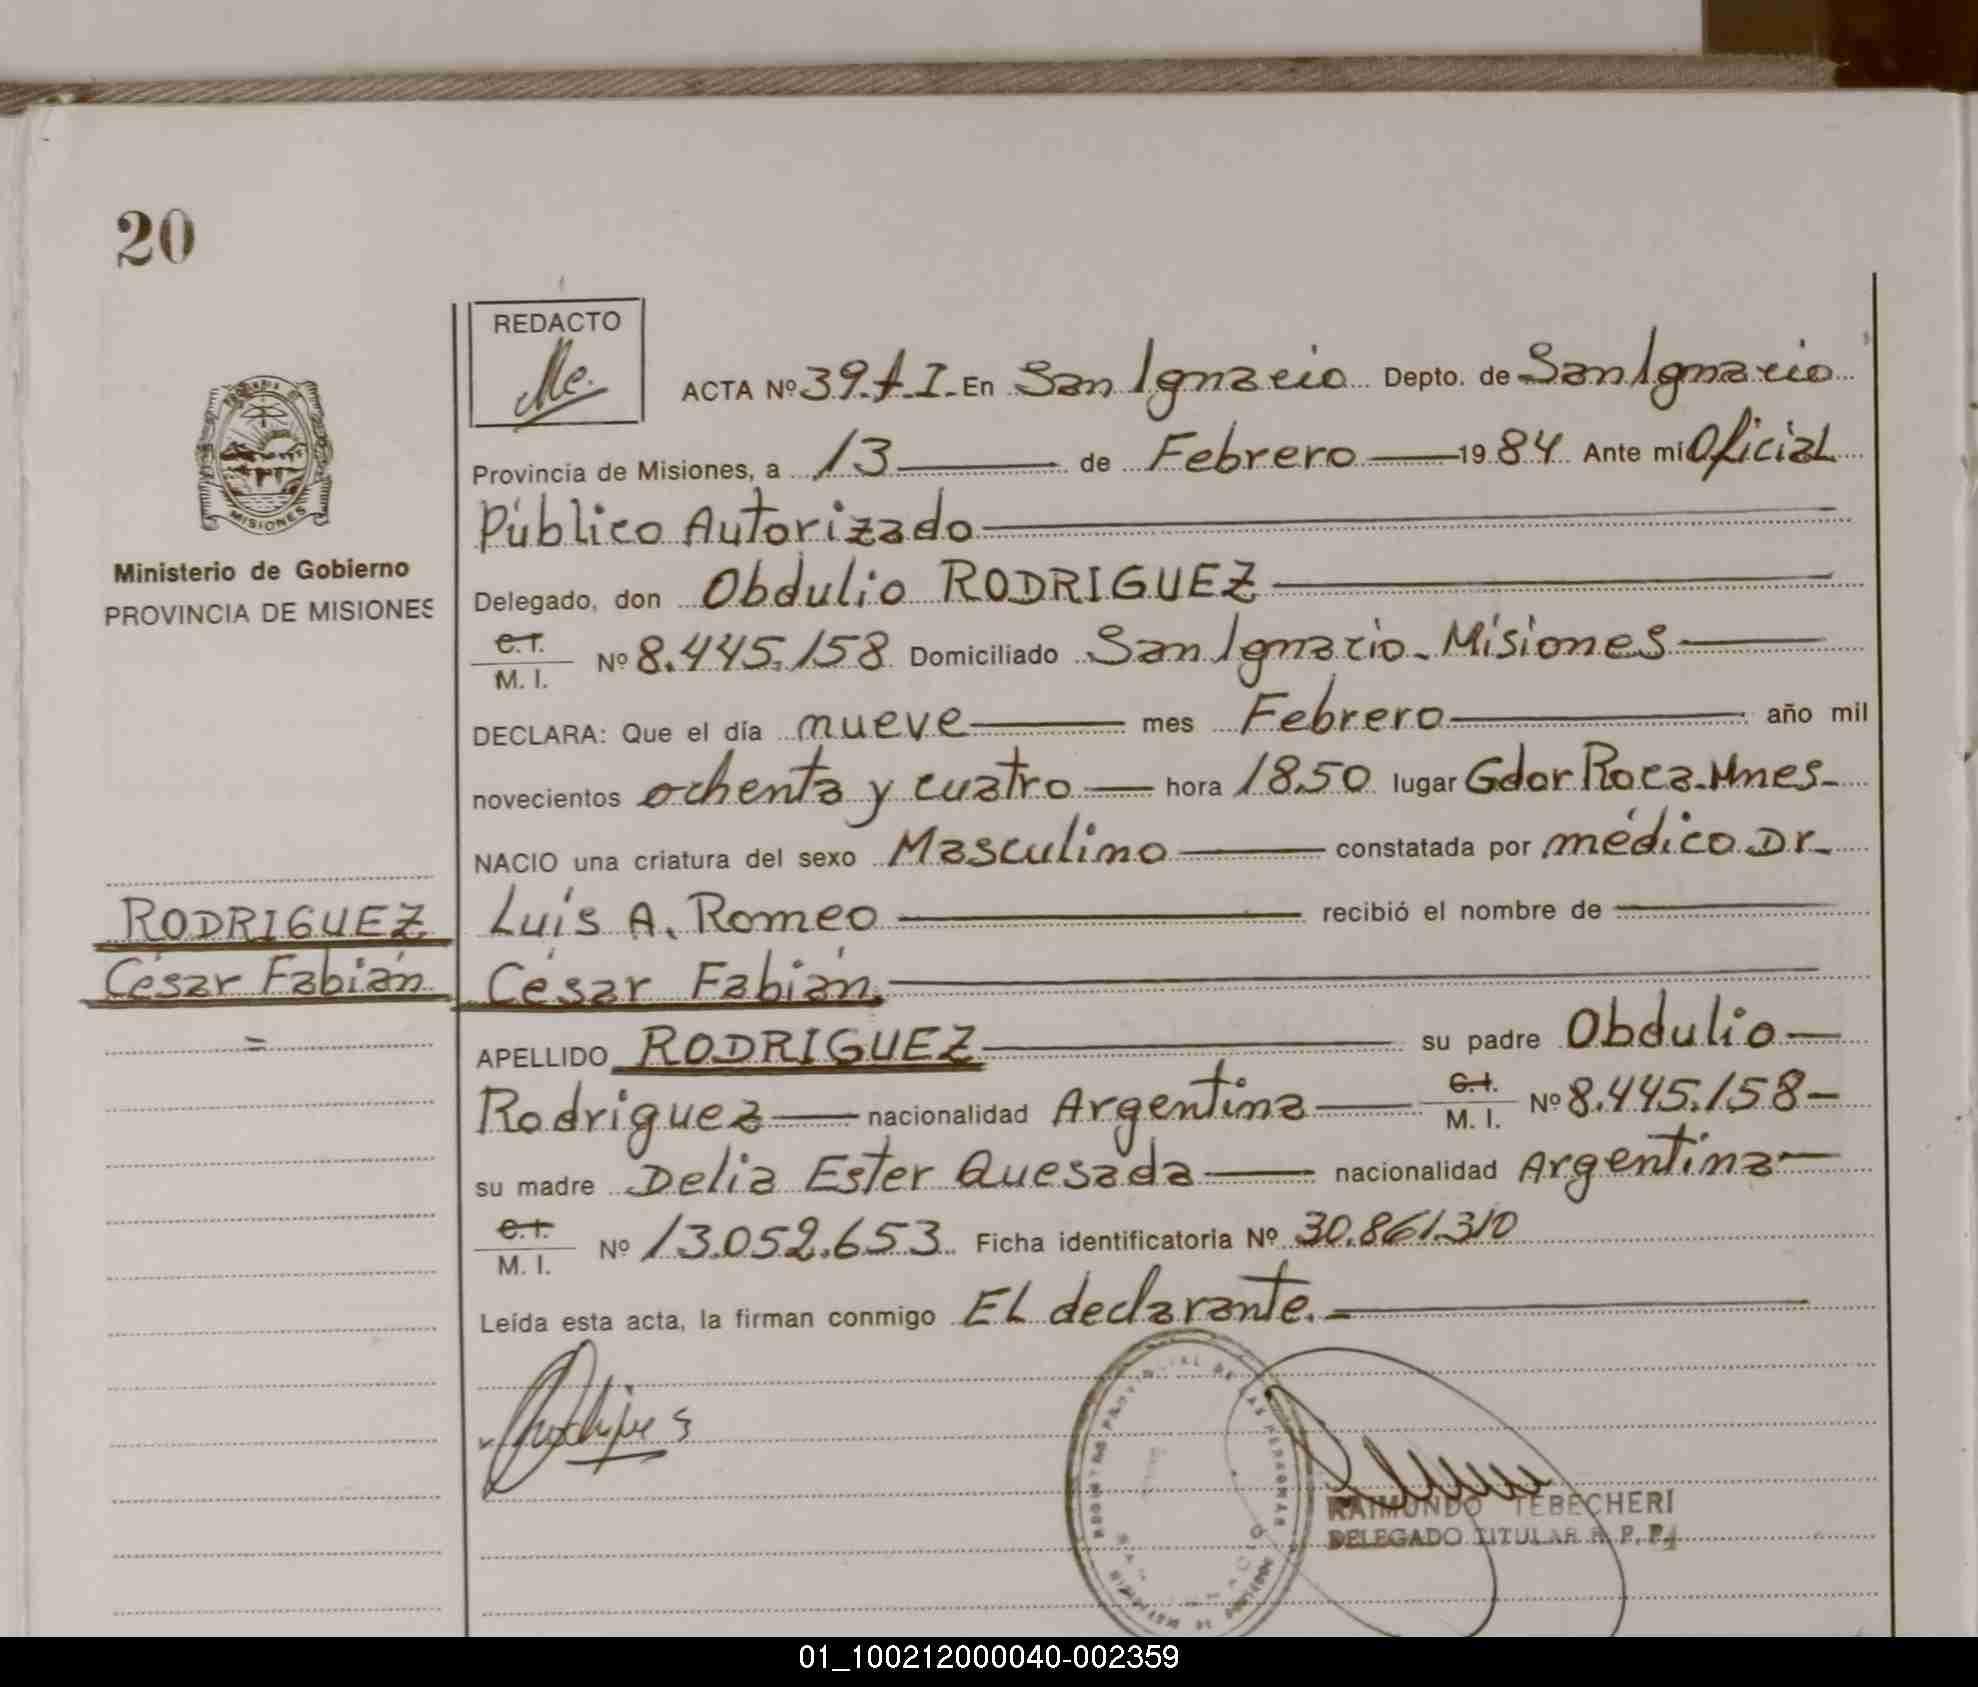 20
REDACTO
ACTA Nº 39.f.I. En San Ignacio Depto. de San Ignacio
Provincia de Misiones, a 13 de Febrero 1984 Ante mí Oficial
Público Autorizado
Delegado, don Obdulio RODRIGUEZ
C.I.
M. I. Nº 8.445.158 Domiciliado San Ignacio - Misiones
DECLARA: Que el día nueve mes Febrero año mil
novecientos ochenta y cuatro hora 18,50 lugar Gdor Roca-Mnes-
NACIO una criatura del sexo Masculino constatada por médico Dr.
Luis A. Romeo recibió el nombre de
César Fabián
APELLIDO RODRIGUEZ su padre Obdulio
Rodriguez nacionalidad Argentina C.I. M. I. Nº 8.445.158-
su madre Delia Ester Quesada nacionalidad Argentina
C.I.
M. I. Nº 13.052.653 Ficha identificatoria Nº 30.861.310
Leída esta acta, la firman conmigo El declarante.-
MISIONES
Ministerio de Gobierno
PROVINCIA DE MISIONES
RODRIGUEZ
César Fabián
=
RAIMUNDO TEBECHERI
DELEGADO TITULAR R. P. P.
01_100212000040-002359